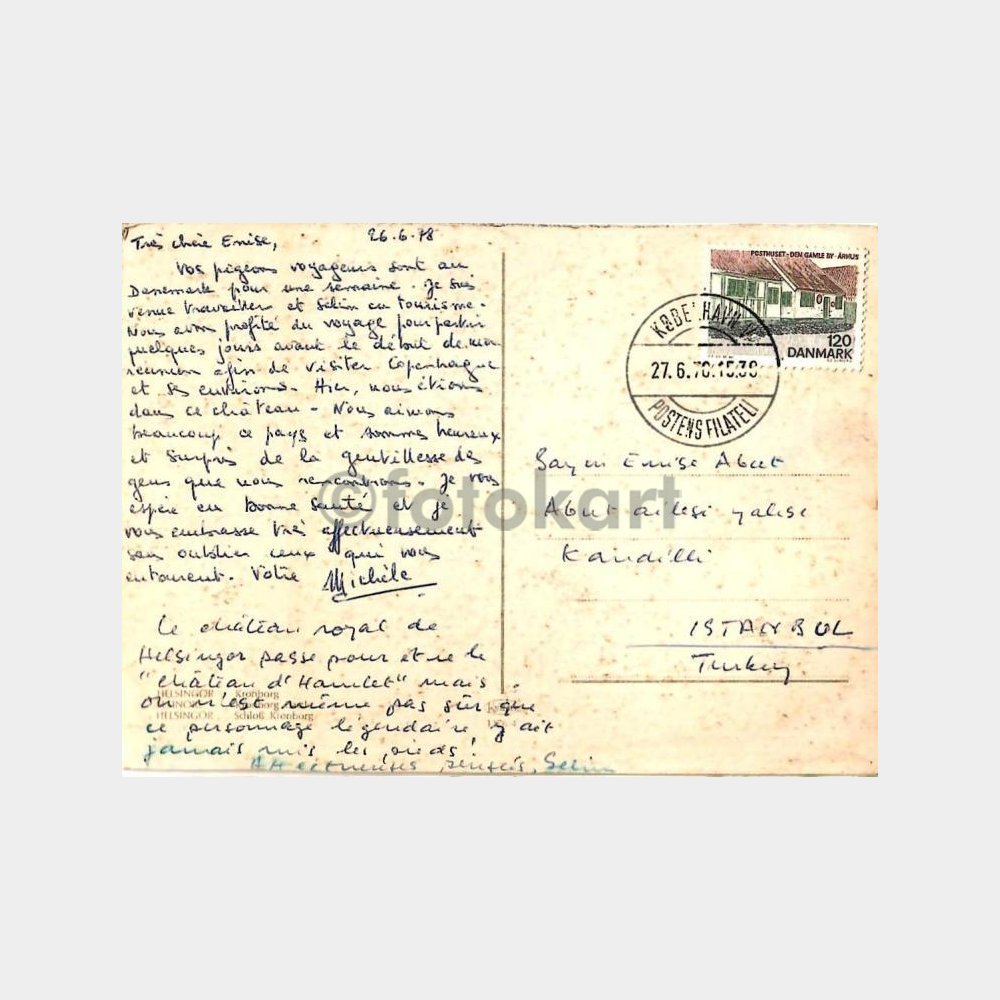 Très chère Emise, 26.6.78
Vos pigeons voyageurs sont au
Danemark pour une semaine. Je suis
venue travailler et Selim en tourisme.
Nous avons profité du voyage pour partir
quelques jours avant le début de ma
réunion afin de visiter Copenhague
et ses environs. Hier, nous étions
dans ce château. Nous aimons
beaucoup ce pays et sommes heureux
et surpris de la gentillesse des
gens que nous rencontrons. Je vous
espère en bonne santé et je
vous embrasse très affectueusement
sans oublier ceux qui vous
entourent. Votre Michèle
Le château royal de
Helsingor passe pour être le
"château d'Hamlet" mais
on n'est même pas sûr que
ce personnage légendaire y ait
jamais mis les pieds!
Affectueuses pensées, Selim
HELSINGØR Kronborg
HELSINGØR Schloß Kronborg
POSTHUSET - DEN GAMLE BY - ÅRHUS
120
DANMARK
KØBENHAVN V
27.6.78.15.30
POSTENS FILATELI
Sayın Emise Abut
Abut ailesi yalısı
Kandilli
ISTANBUL
Turkey
©fotokart